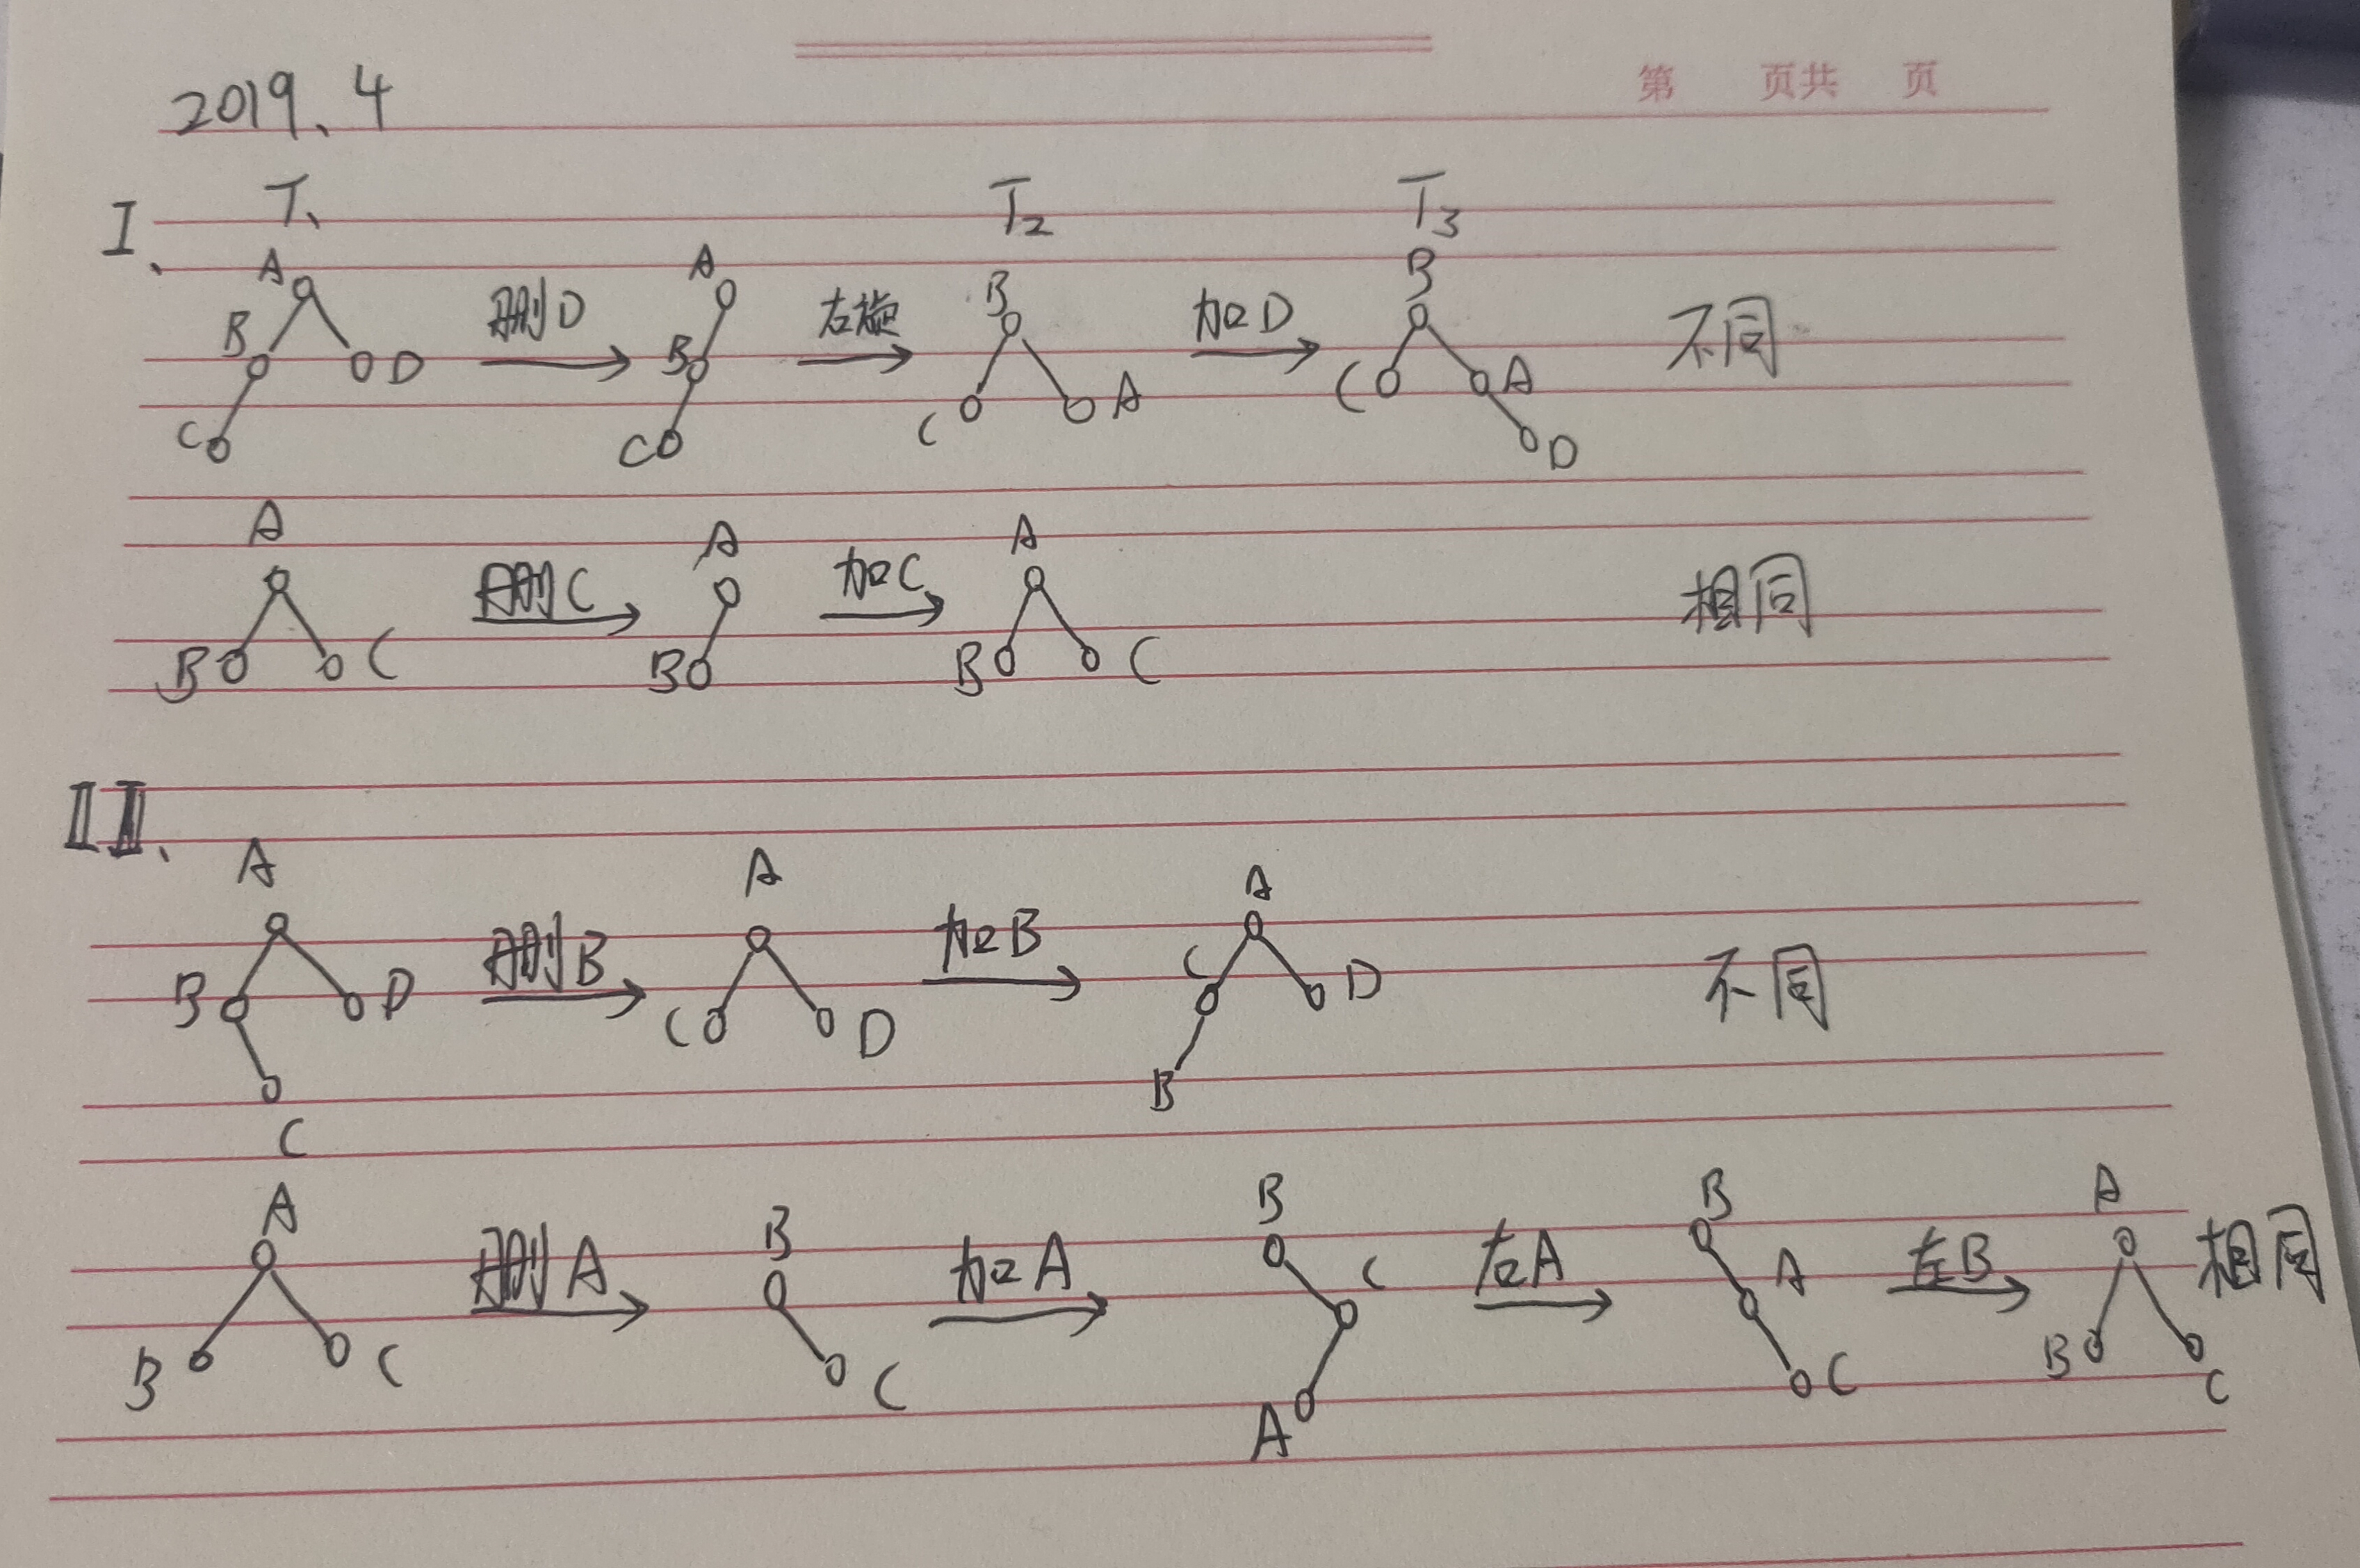 第 页共 页
2019.4
I、 T1 T2 T3
A 删D A 右旋 B 加D B 不同
B D B C A C A
C C D
A 删C A 加C A 相同
B C B B C
II、
A 删B A 加B A 不同
B D C D C D
C B
A 删A B 加A B 右A B 左B A 相同
B C C C A B C
A C